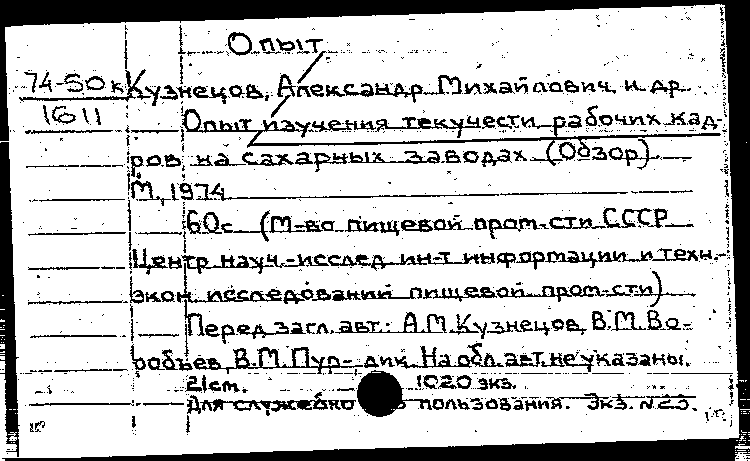 Опыт
74-50к Кузнецов, Александр Михайлович и др.
1611
Опыт изучения текучести рабочих кад-
ров на сахарных заводах (Обзор).
М., 1974
60с (М-во пищевой пром-сти СССР
Центр науч.-исслед. ин-т информации и техн.-
экон. исследований пищевой пром-сти)
Перед загл. авт.: А.М.Кузнецов, В.М.Во-
робьев, В.М.Пур- дик. На обл. авт. не указаны.
21см. 1020 экз.
Для служебно пользования. Экз. №23.